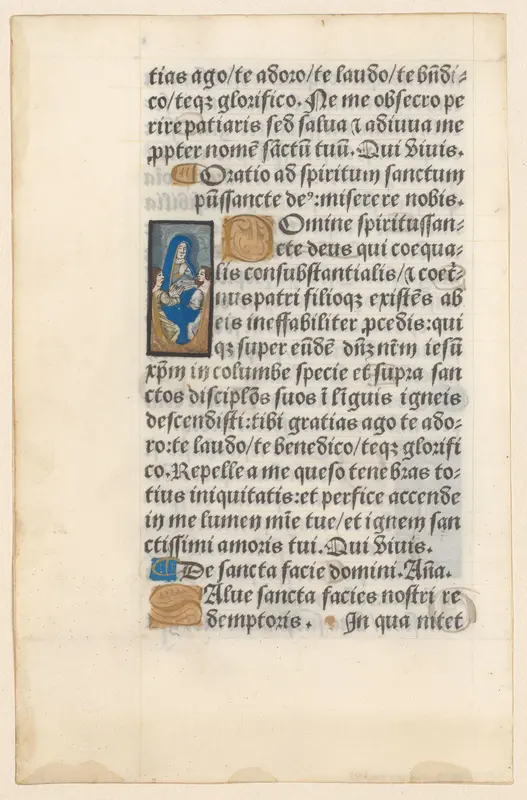 tias ago/te adoro/te laudo/te bn̄di-
co/teqꝫ glorifico. Ne me obsecro pe
rire patiaris sed salua ⁊ adiuua me
ꝓpter nomē sāctū tuū. Qui viuis.
Oratio ad spiritum sanctum
pn̄ssancte deꝰ: miserere nobis.
Domine spiritussan-
cte deus qui coequa-
lis consubstantialis/⁊ coet̄
nus patri filioqꝫ existēs ab
eis ineffabiliter ꝓcedis: qui
qꝫ super eūdē dn̄ꝫ nr̄m iesū
xp̄m in columbe specie et supra san
ctos disciplōs suos ī līguis igneis
descendisti: tibi gratias ago te ado-
ro: te laudo/te benedico/teqꝫ glorifi
co. Repelle a me queso tenebras to-
tius iniquitatis: et perfice accende
in me lumen mīe tue/et ignem san
ctissimi amoris tui. Qui viuis.
De sancta facie domini. An̄a.
Salue sancta facies nostri re
demptoris. In qua nitet